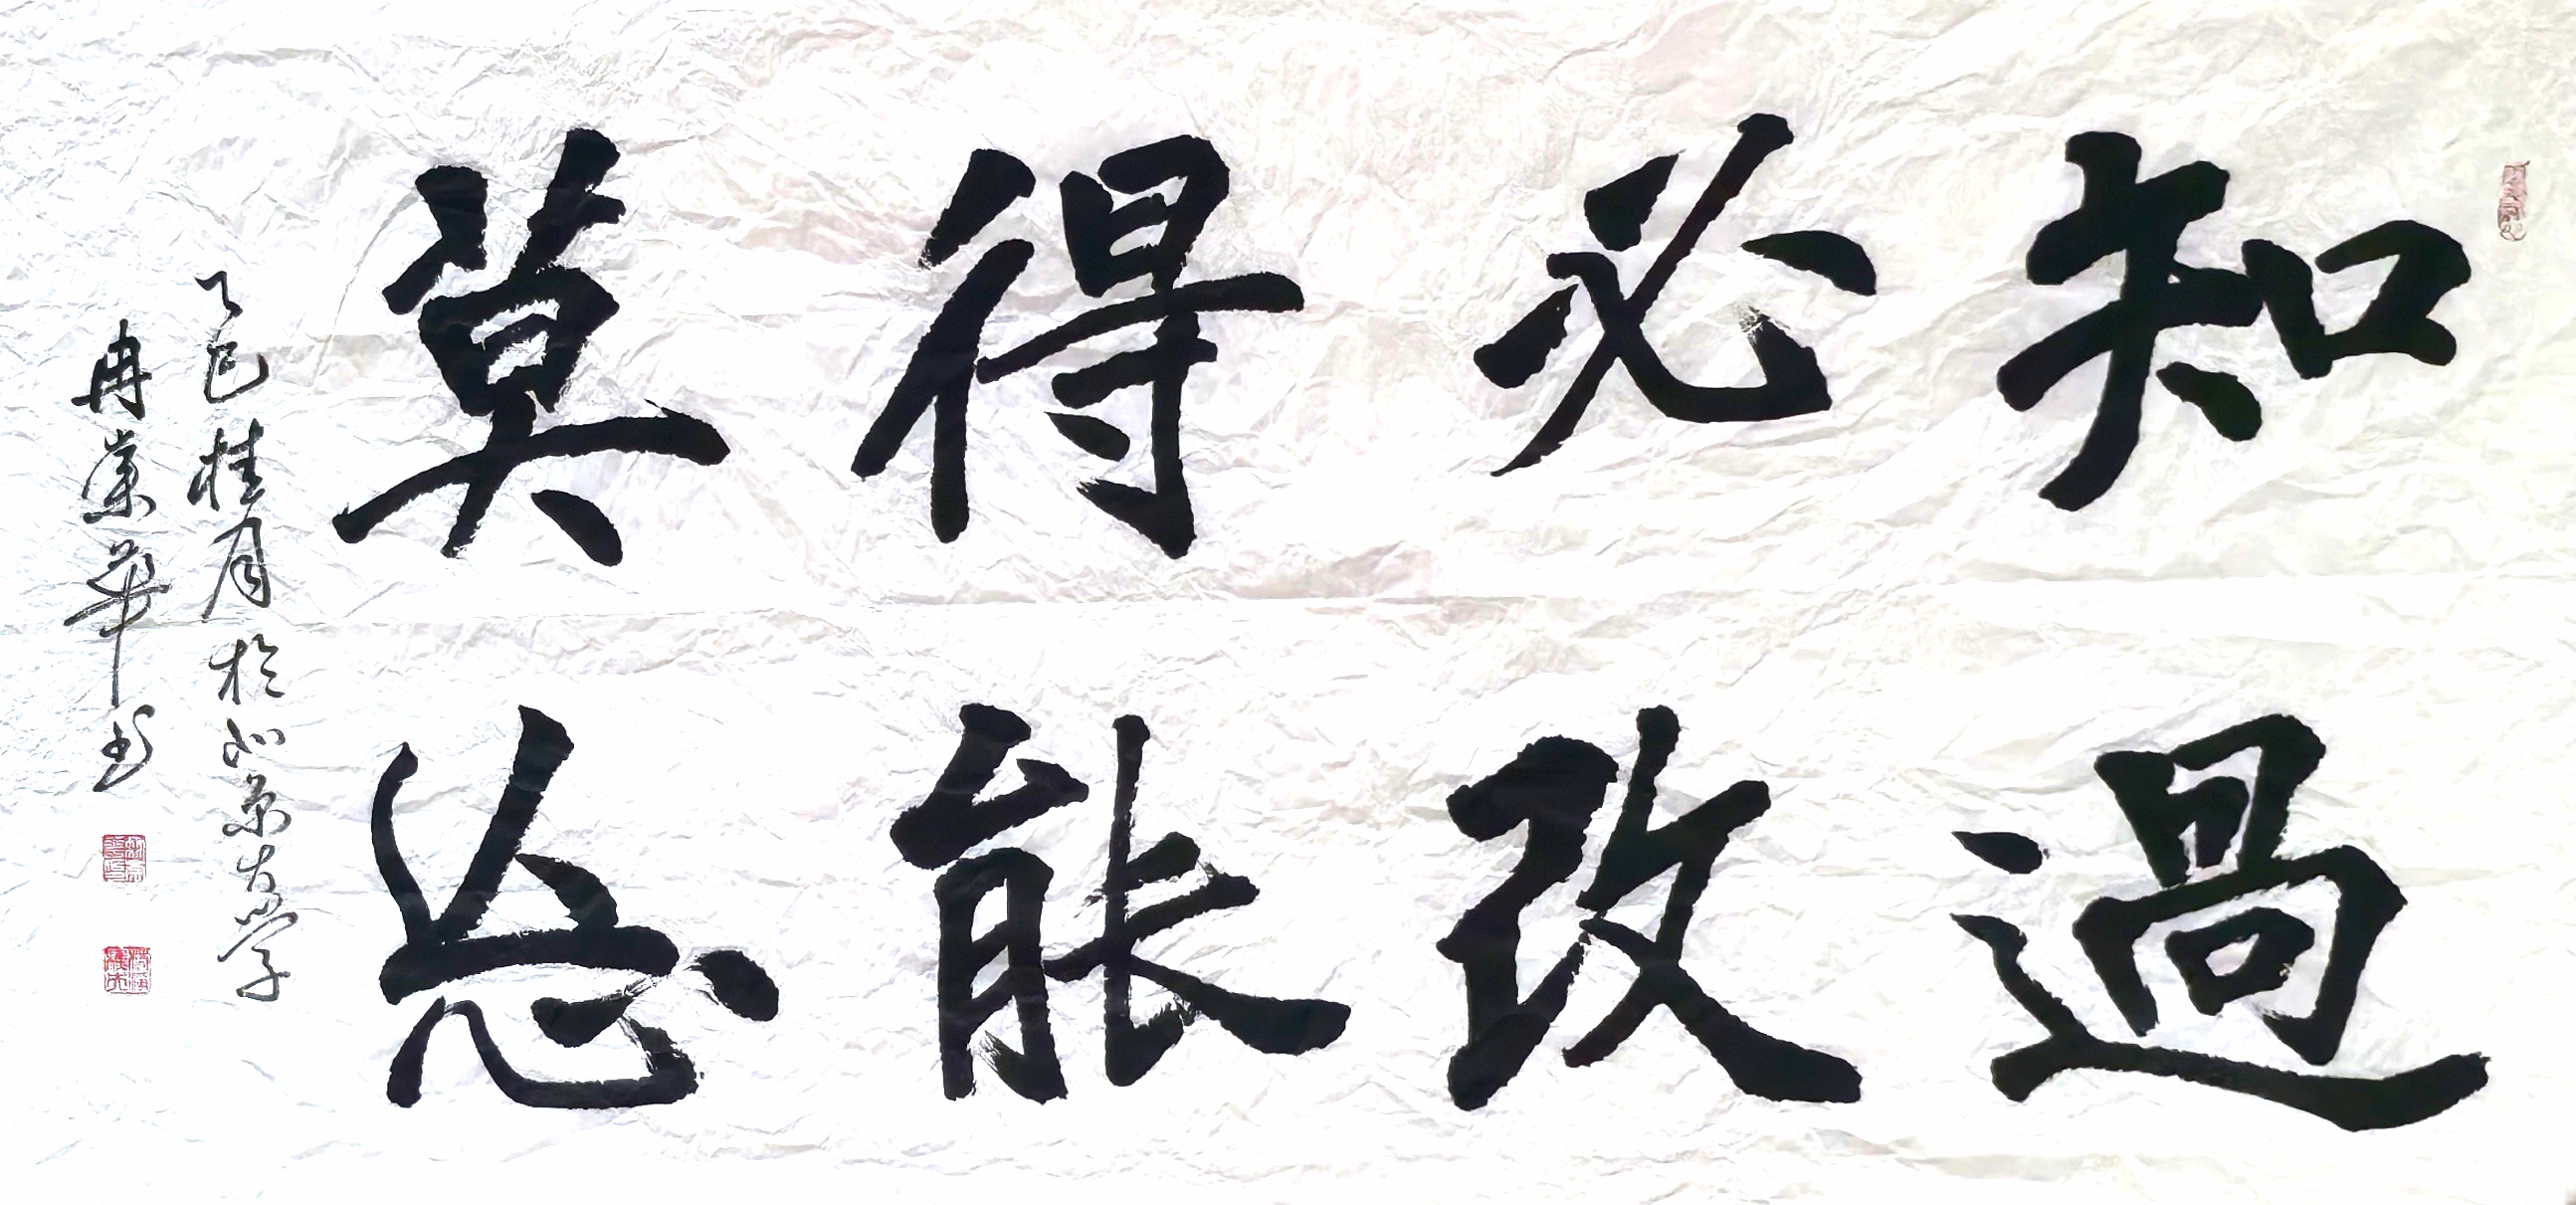 知過
必改
得能
莫忘
乙巳桂月於北京大學
冉榮華书